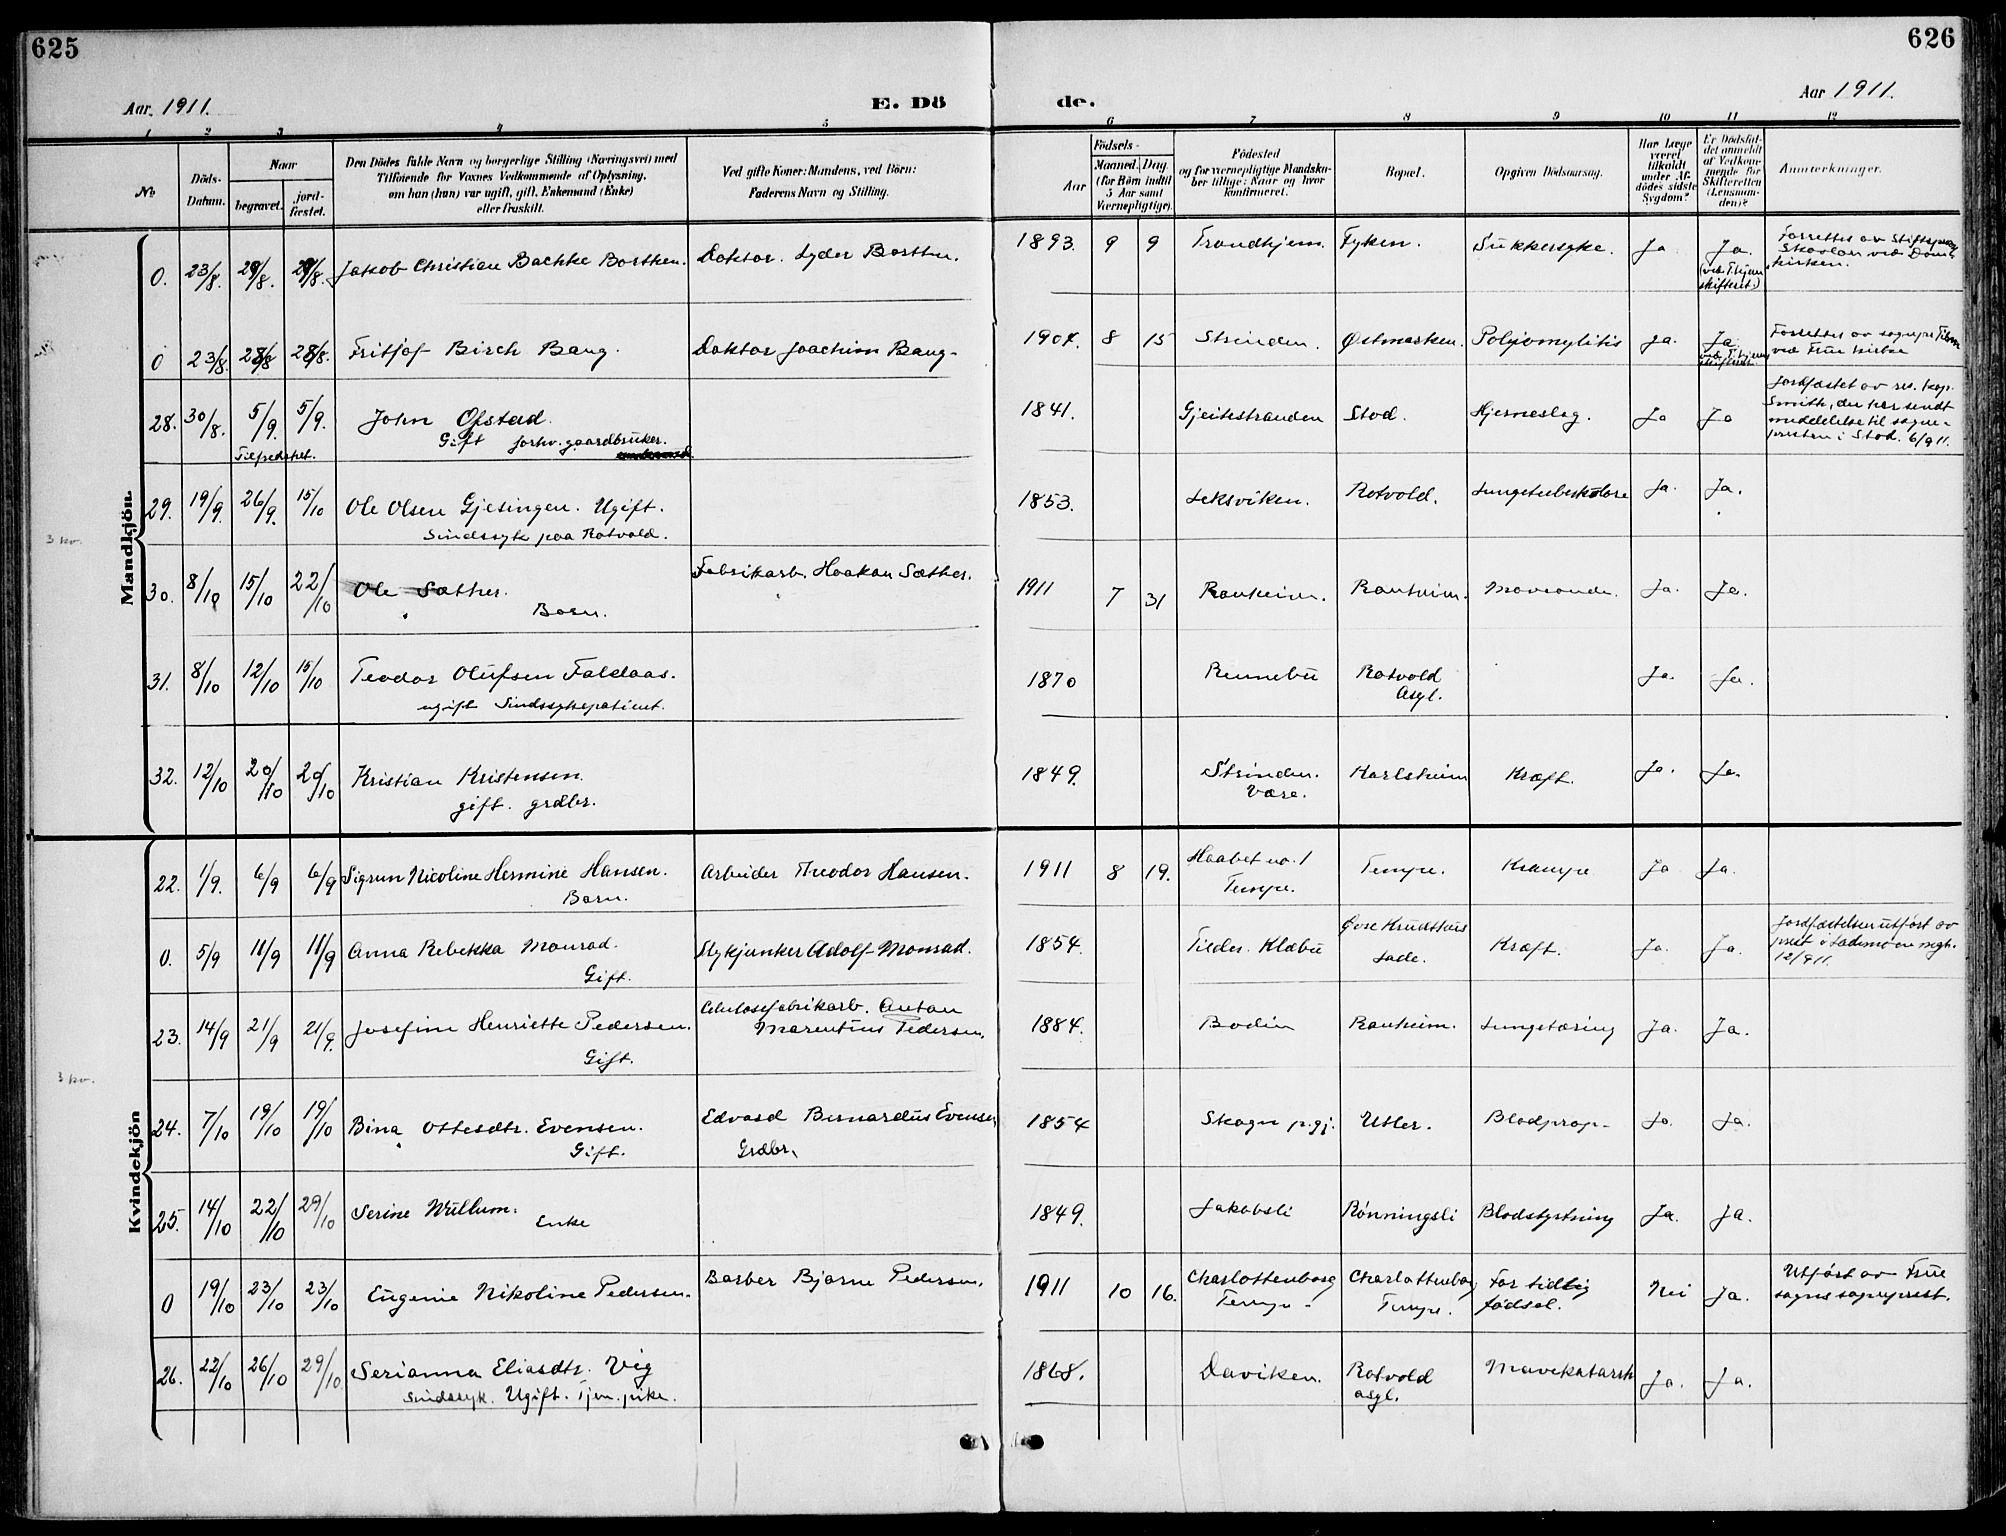 625
626
Aar. 1911.
E. Dö
de.
Aar 1911.
1 2 3 4 5 6 7 8 9 10 11 12
No
Döds-
Datum.
Naar
begravet.
jord-
fæstet.
Den Dödes fulde Navn og borgerlige Stilling (Næringsvei) med
Tilføiende for Voxnes Vedkommende af Oplysning,
om han (hun) var ugift, gift, Enkemand (Enke)
eller fraskilt.
Ved gifte Koner: Mandens, ved Börn:
Faderens Navn og Stilling.
Födsels-
Aar
Maaned. Dag.
(for Börn indtil
5 Aar samt
Værnepligtige).
Födested
og for værnepligtige Mandska-
ber tillige: Naar og hvor
konfirmeret.
Bopæl.
Opgiven Dödsaarsag.
Har Læge
været
tilkaldt
under Af-
dödes sidste
Sygdom?
Er Dödsfal-
det anmeldt
af Vedkom-
mende for
Skifteretten
(Lensman-
den)?
Anmærkninger.
Mandkjön.
3 kv.
0. 23/8. 29/8. 29/8. Jakob Christian Backke Borthen. Doktor. Lyder Borthen. 1893. 9 9 Trondhjem. Fyken. Sukkersyke. Ja Ja. (ved T.hjem skifteret.) Forrettet av Stiftsprov. Skavlan ved Dom- kirken.
0 23/8. 28/8 28/8. Fritjof Birch Bang. Doktor Joachim Bang. 1904. 8 15 Strinden. Østmarken. Polyomylitis Ja. Ja. Forrettet av sognepr. ved Frue kirke
28. 30/8. 5/9. 5/9. John Ofstad. 1841. Gjeitestranden Stod. Hjerneslag. Ja Ja Jordfæstet av res. kap.
Gift forhv. gaardbruker. Smith, der har sendt
Tilfredshet. meddelelse til sogne-
presten i Stod. 6/9 11.
29. 19/9. 26/9. 15/10 Ole Olsen Gjesingen. Ugift. 1853. Leksviken. Rotvold. Lungetuberkulose Ja. Ja.
Sindssyk paa Rotvold.
30. 8/10 15/10 22/10 Ole Sæther. Fabrikarb. Haakon Sæther. 1911 7 31 Ranheim. Ranheim. Maveonde. Ja. Ja.
Barn.
31. 8/10 12/10 15/10 Teodor Olufsen Foldaas. 1870 Rennebu Rotvold Asyl. Ja. Ja.
ugift Sindssykepatient.
32. 12/10 20/10 20/10 Kristian Kristensen. 1849. Strinden. Være. Karlsheim Kræft. Ja. Ja.
gift. grdbr.
Kvindekjön
3 kv.
22. 1/9. 6/9 6/9 Sigrun Nicoline Hermine Hansen. Arbeider Theodor Hansen. 1911 8 19. Haabet no. 1 Tempe. Tempe. Krampe Ja Ja.
Barn.
0. 5/9 11/9 11/9 Anna Rebekka Monrad. Slykjunker Adolf Monrad. 1854. Tilder. Klæbu Øvre Krudthus Lade. Kræft. Ja. Ja. Jordfæstelsen utført av prest i Lademoen mgh. 12/9 11.
Gift.
23. 14/9 21/9 21/9. Josefine Henriette Pedersen. Celulosefabrikarb. Anton Marentius Pedersen. 1884. Bodin Ranheim. Lungetæring Ja. Ja.
Gift.
24. 7/10 19/10 19/10 Bina Ottesdtr. Evensen. Edvard Bernardus Evensen Grdbr. 1854 Skogn p.gj. Utler. Blodprop. Ja. Ja.
Gift.
25. 14/10 22/10 29/10 Serine Wullum. 1849. Jakobsli Rønningsli Blodstyrtning Ja. Ja.
Enke
0 19/10 23/10 23/10 Eugenie Nikoline Pedersen. Barber Bjarne Pedersen. 1911 10 16. Charlottenborg Tempe. Charlottenborg Tempe. For tidlig fødsel. Nei Ja. Utført av Frue sogns sogneprest.
26. 22/10 26/10 29/10. Serianna Eliasdtr. Vig 1868. Daviken. Rotvold asyl. Mavekatarrh Ja. Ja.
Sindssyk. Ugift. Tjen. pike.